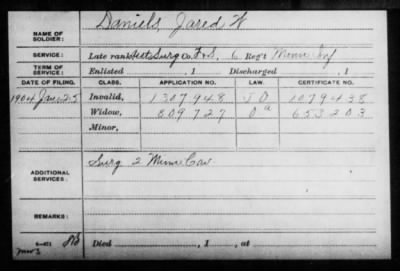 NAME OF SOLDIER: Daniels, Jared W
SERVICE: Late rank Asst Surg Co. F&S, 6 Reg't Minn Inf
TERM OF SERVICE: Enlisted , 1 Discharged , 1
DATE OF FILING. CLASS. APPLICATION NO. LAW. CERTIFICATE NO.
1904 Jan 25 Invalid, 1307948 1079438
Widow, 809727 653203
Minor,
ADDITIONAL SERVICES: Surg 2 Minn Cav
REMARKS:
Died , 1 , at